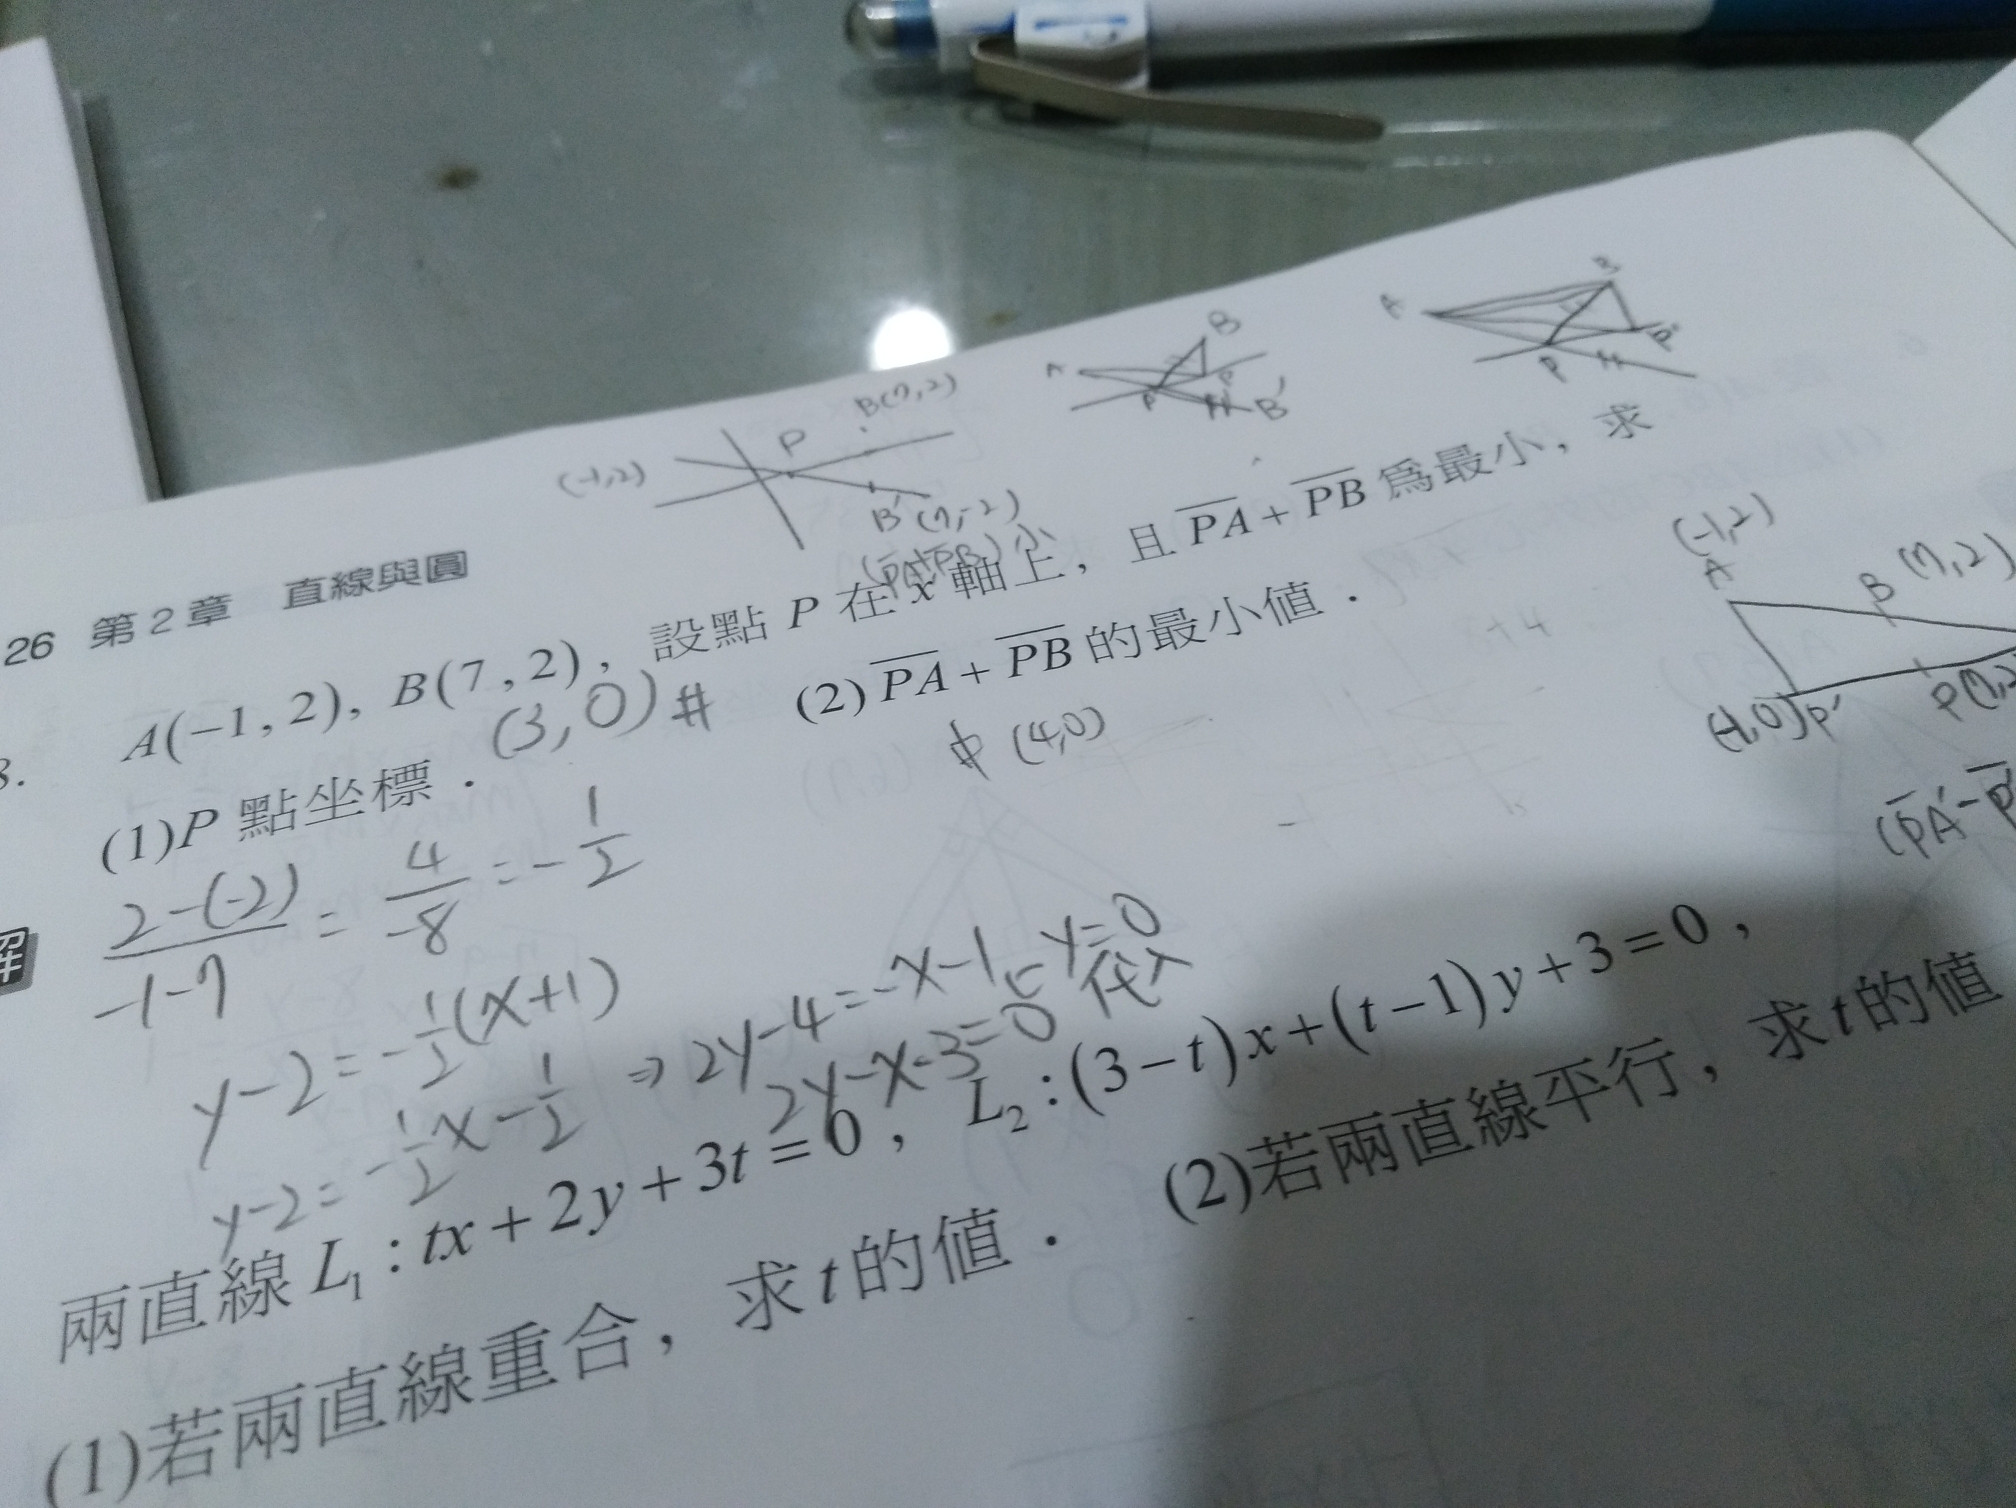 B(7,2)
A
B
P
P'
B'
A
B
P
P'
(-1,2)
P
B'(7,-2)
(PA+PB)小
26 第2章 直線與圓
A(−1,2), B(7,2), 設點 P 在 x 軸上, 且 PA + PB 爲最小, 求
(1)P 點坐標. (3,0)# (2) PA + PB 的最小值.
(4,0)
(-1,2)
A
B (7,2)
(-1,0)P'
解
2-(-2)/-1-7 = 4/-8 = -1/2
y-2=-1/2(x+1)
y-2=-1/2x-1/2 ⇒ 2y-4=-x-1 y=0
2y-x-3=0 代入
兩直線 L₁ : tx + 2y + 3t = 0, L₂ : (3−t)x + (t−1)y + 3 = 0,
(1)若兩直線重合, 求 t 的值. (2)若兩直線平行, 求 t 的值